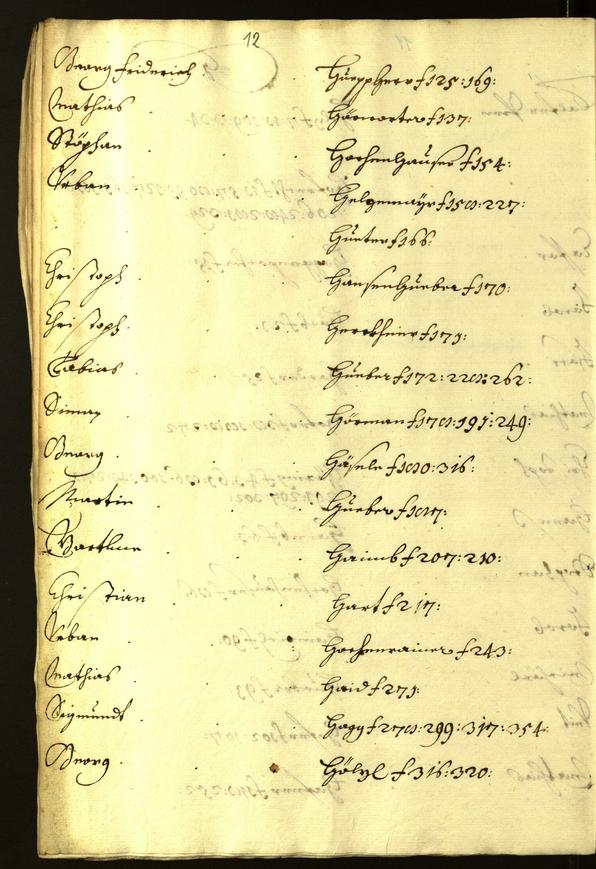 12
Georg Friderich Hüeppherr f 125: 169:
Mathias Hörwarter f 137:
Stöphan Hochenhauser f 154:
Urban Helzemayr f 158: 227:
Hueter f 166:
Christoph Hansenhueber f 170:
Christoph Herkheimr f 171:
Tobias Hueber f 172: 228: 262:
Simon Hörman f 178: 191: 249:
Georg Häsele f 180: 316:
Martin Hueber f 187:
Bartlme Haimb f 207: 210:
Christian Hart f 217:
Urban Hochenrainer f 243:
Mathias Haid f 271:
Sigmundt Hagg f 278: 299: 317: 354:
Georg Hölzl f 316: 320: